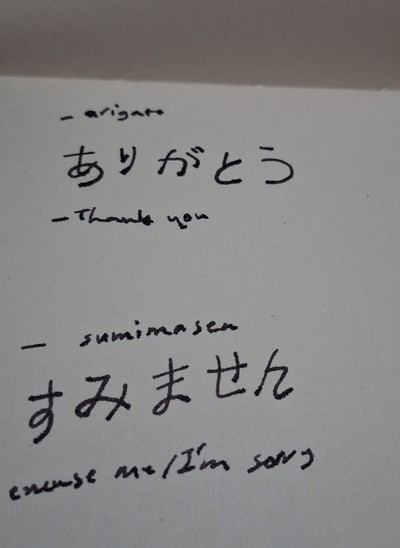 - arigato
ありがとう
- Thank you
- sumimasen
すみません
excuse me/I'm sorry